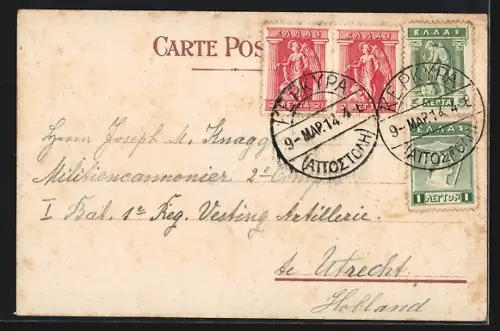 CARTE POS
ΕΛΛΑΣ
ΕΛΛΑΣ
ΛΕΠΤΑ 2
2 ΛΕΠΤΑ
ΛΕΠΤΑ
ΕΛΛΑΣ
1 ΛΕΠΤΟΝ 1
ΚΕΡΚΥΡΑ
9-ΜΑΡ.14 4
(ΑΠΟΣΤΟΛΗ)
ΚΕΡΚΥΡΑ
9-ΜΑΡ.14 4
(ΑΠΟΣΤΟΛΗ)
Herrn Joseph M. Knagg
Militiencannonier 2e Comp
I Bat. 1e Reg. Vesting Artillerie.
te Utrecht
Holland